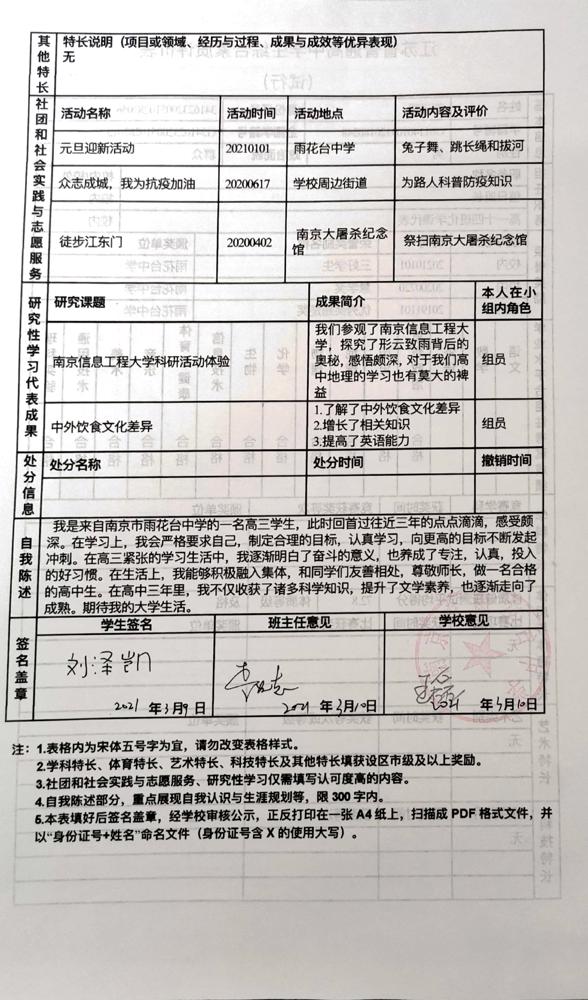 其他特长
特长说明（项目或领域、经历与过程、成果与成效等优异表现）
无
社团和社会实践与志愿服务
活动名称 活动时间 活动地点 活动内容及评价
元旦迎新活动 20210101 雨花台中学 兔子舞、跳长绳和拔河
众志成城，我为抗疫加油 20200617 学校周边街道 为路人科普防疫知识
徒步江东门 20200402 南京大屠杀纪念馆 祭扫南京大屠杀纪念馆
研究性学习代表成果
研究课题 成果简介 本人在小组内角色
南京信息工程大学科研活动体验
我们参观了南京信息工程大
学，探究了形云致雨背后的
奥秘，感悟颇深，对于我们高
中地理的学习也有莫大的裨
益
组员
中外饮食文化差异
1.了解了中外饮食文化差异
2.增长了相关知识
3.提高了英语能力
组员
处分信息
处分名称 处分时间 撤销时间
自我陈述
我是来自南京市雨花台中学的一名高三学生，此时回首过往近三年的点点滴滴，感受颇
深。在学习上，我会严格要求自己，制定合理的目标，认真学习，向更高的目标不断发起
冲刺。在高三紧张的学习生活中，我逐渐明白了奋斗的意义，也养成了专注，认真，投入
的好习惯。在生活上，我能够积极融入集体，和同学们友善相处，尊敬师长，做一名合格
的高中生。在高中三年里，我不仅收获了诸多科学知识，提升了文学素养，也逐渐走向了
成熟。期待我的大学生活。
签名盖章
学生签名 班主任意见 学校意见
刘泽凯
2021 年 3月9日 2021 年 3月10日 2021 年 3月10日
注：1.表格内为宋体五号字为宜，请勿改变表格样式。
2.学科特长、体育特长、艺术特长、科技特长及其他特长填获设区市级及以上奖励。
3.社团和社会实践与志愿服务、研究性学习仅需填写认可度高的内容。
4.自我陈述部分，重点展现自我认识与生涯规划等，限 300 字内。
5.本表填好后签名盖章，经学校审核公示，正反打印在一张 A4 纸上，扫描成 PDF 格式文件，并
以“身份证号+姓名”命名文件（身份证号含 X 的使用大写）。